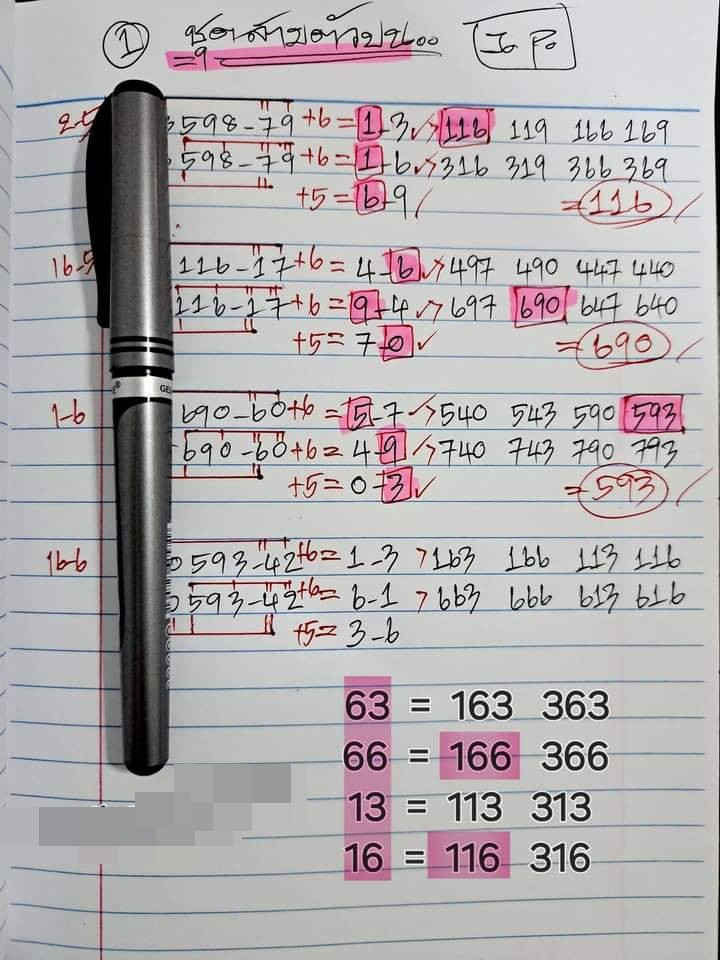 1 ชุดสามตัวบน..
=9
2-5 598-79+6=1-3 > 116 119 166 169
598-79+6=1-6 > 316 319 366 369
+5=6-9 =116
16-5 116-17+6=4-6 > 497 490 447 440
116-17+6=9-4 > 697 690 647 640
+5=7-0 =690
1-6 690-60+6=5-7 > 540 543 590 593
690-60+6=4-9 > 740 743 790 793
+5=0-3 =593
16-6 593-42+6=1-3 > 163 166 113 116
593-42+6=6-1 > 663 666 613 616
+5=3-6
63 = 163 363
66 = 166 366
13 = 113 313
16 = 116 316